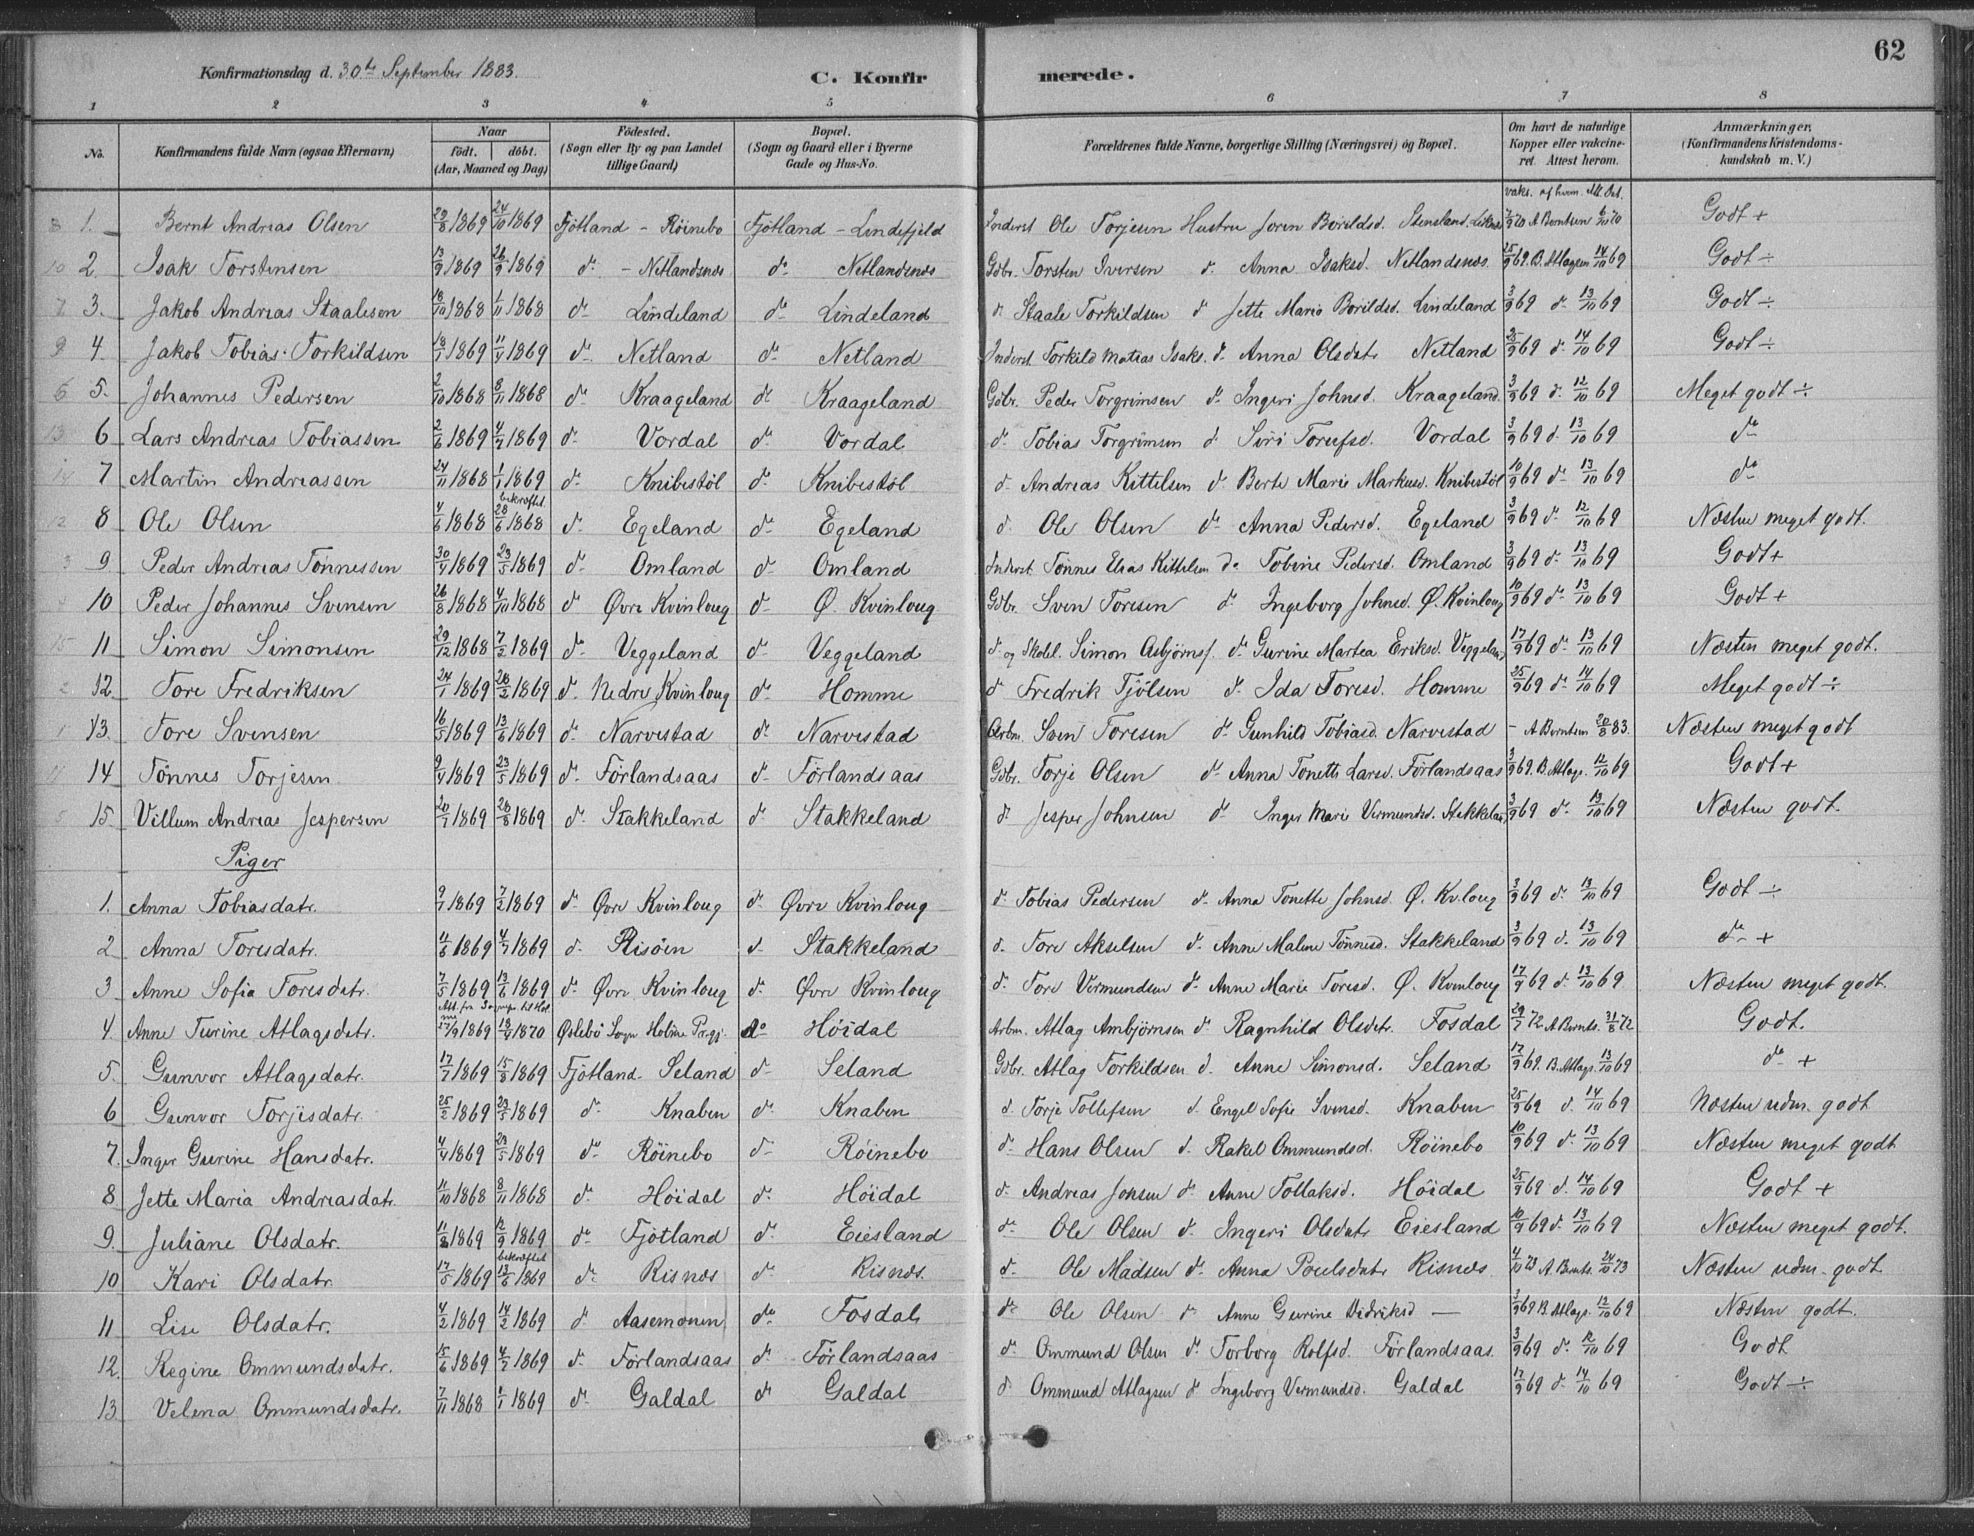 62
Konfirmationsdag d. 30te September 1883.
C. Konfirmerede.
1 2 3 4 5 6 7 8
No. | Konfirmandens fulde Navn (ogsaa Efternavn) | Naar født. døbt. (Aar, Maaned og Dag) | Fødested. (Sogn eller By og paa Landet tillige Gaard) | Bopæl. (Sogn og Gaard eller i Byerne Gade og Hus-No. | Forældrenes fulde Navne, borgerlige Stilling (Næringsvei) og Bopæl. | Om havt de naturlige Kopper eller vakcineret. Attest herom. | Anmærkninger. (Konfirmandens Kristendomskundskab m. V.)
vaks. af hvem. Att. Dat.
8 1. Bernt Andreas Olsen 29/8 1869 24/10 1869 Fjotland - Röinebo Fjotland - Lindefjeld Inderst Ole Torjesen Hustru Joren Bårildsd. Stensland. 7/9 70 A Berntsen 6/10 70 Godt +
10 2. Isak Torstensen 13/9 1869 26/9 1869 do - Netlandsnæs do Netlandsnæs Gdbr. Torsten Iversen d. Anna Isaksd. Netlandsnæs 25/9 69. B. Atlagsen 14/10 69 Godt ÷
7 3. Jakob Andreas Staalesen 18/10 1868 1/11 1868 do Lindeland do Lindeland d. Staale Torkildsen d Jette Maria Borildsd. Lindeland 3/9 69 d. 13/10 69 Godt ÷
9 4. Jakob Tobias Torkildsen 18/1 1869 11/4 1869 do Netland do Netland Inderst Torkild Matias Isaks. d. Anna Olsdatr Netland 25/9 69 d. 14/10 69 Godt ÷
6 5. Johannes Pedersen 2/10 1868 8/11 1868 do Kraageland do Kraageland Gdbr. Peder Torgrimsen d. Ingeri Johnsd. Kraageland 3/9 69 d. 12/10 69 Meget godt ÷
13 6 Lars Andreas Tobiassen 2/6 1869 4/7 1869 do Vordal do Vordal d. Tobias Torgrimsen d. Siri Torufsd. Vordal 3/9 69 d. 13/10 69 do
14 7 Martin Andreassen 24/11 1868 1/1 1869 do Knibestöl do Knibestöl d. Andreas Kittelsen d. Berte Marie Markusd. Knibestöl 10/9 69 d. 13/10 69 do
12 8 Ole Olsen 4/6 1868 bekræftet 28/6 1868 do Egeland do Egeland d. Ole Olsen d. Anna Pedersd. Egeland 3/9 69 d. 12/10 69 Næsten meget godt.
3 9 Peder Andreas Tönnessen 30/4 1869 23/5 1869 do Omland do Omland Inderst Tönnes Elias Kittelsen do Tobine Pedersd. Omland 3/9 69 d. 13/10 69 Godt +
10 Peder Johannes Svensen 26/8 1868 4/10 1868 d Øvre Kvinloug d. Ø. Kvinloug Gdbr. Sven Toresen d. Ingeborg Johnsd. Ø. Kvinloug 10/9 69 d. 13/10 69 Godt +
15 11 Simon Simonsen 29/12 1868 7/2 1869 do Veggeland do Veggeland d. og Skolel. Simon Asbjörns. d. Gurine Martea Eriksd. Veggeland 17/9 69 d. 13/10 69 Næsten meget godt.
2 12. Tore Fredriksen 24/1 1869 28/2 1869 d. Nedre Kvinloug do Homme d Fredrik Tjölsen d. Ida Toresd. Homme 25/9 69 d. 14/10 69 Meget godt ÷
1 13. Tore Svensen 16/5 1869 13/6 1869 do Narvestad do Narvestad Arbm. Sven Toresen d. Gunhild Tobiasd. Narvestad - A Berntsen 20/8 83. Næsten meget godt
11 14 Tönnes Torjesen 9/4 1869 23/5 1869 do Förlandsaas do Förlandsaas Gdbr. Torje Olsen d. Anna Tonette Larsd. Förlandsaas 3/9 69. B. Atlags. 12/10 69 Godt +
5 15. Villum Andreas Jespersen 20/7 1869 26/8 1869 do Stakkeland do Stakkeland d. Jesper Johnsen d. Inger Marie Vermundsd. Stakkeland 3/9 69 d. 13/10 69 Næsten godt.
Piger
1. Anna Tobiasdatr. 9/1 1869 7/2 1869 do Øvre Kvinloug do Øvre Kvinloug d. Tobias Pedersen d. Anna Tonette Johnsd. Ø. Kv.loug 3/9 69 d. 13/10 69 Godt ÷
2 Anna Toresdatr. 11/6 1869 4/7 1869 d. Risöen d. Stakkeland d. Tore Akselsen d. Anne Maline Tönnesd. Stakkeland 3/9 69 d. 13/10 69 do +
3 Anne Sofia Toresdatr. 7/5 1869 13/6 1869 do Øvre Kvinloug do Øvre Kvinloug d. Tore Vermundsen d. Anne Marie Toresd. Ø. Kvinloug 17/9 69 d. 13/10 69 Næsten meget godt.
4. Anne Turine Atlagsdatr. 27/9 1869 18/4 1870 Øslebö Sogn Holme Prgj. do Höidal Arbm. Atlag Ambjörnsen d. Ragnhild Olsdatr. Fosdal 29/7 72 A Bernts. 31/8 72 Godt.
5. Gunvor Atlagsdatr. 17/7 1869 15/8 1869 Fjotland - Seland do Seland Gdbr. Atlag Torkildsen d. Anne Simonsd. Seland 17/9 69. B. Atlags. 13/10 69 do +
6 Gunvor Torjesdatr. 25/2 1869 23/5 1869 do Knaben do Knaben d. Torje Tollefsen d. Engel Sofie Svensd. Knaben 25/9 69 d. 14/10 69 Næsten udm. godt
7. Inger Gurine Hansdatr. 4/4 1869 23/5 1869 do Röinebo do Röinebo d. Hans Olsen d. Rakel Ommundsd. Röinebo 10/9 69 d. 13/10 69 Næsten meget godt
8 Jette Maria Andreasdatr. 11/10 1868 8/11 1868 do Höidal do Höidal d. Andreas Jonsen d. Anne Tollaksd. Höidal 25/9 69 d. 14/10 69 Godt +
9. Juliane Olsdatr. 11/8 1869 12/9 1869 do Fjotland do Eiesland do Ole Olsen d. Ingeri Olsdatr Eiesland 10/9 69 d. 13/10 69 Næsten meget godt.
10 Kari Olsdatr. 17/5 1869 bekræftet 13/6 1869 do Risnæs do Risnæs. d. Ole Madsen d. Anna Poulsdatr Risnæs 4/10 73 A. Bernts. 24/10 73 Næsten udm. godt
11 Lise Olsdatr. 4/2 1869 14/2 1869 d Aasemonen do Fosdal do Ole Olsen d. Anne Gurine Didriksd — 3/9 69 B. Atlags. 12/10 69 Næsten godt.
12. Regine Ommundsdatr. 15/6 1869 4/7 1869 do Förlandsaas do Förlandsaas d. Ommund Olsen d. Torborg Rolfsd. Förlandsaas. 3/9 69 d. 12/10 69 Godt
13. Velena Ommundsdatr. 7/11 1868 1/1 1869 do Galdal do Galdal d. Ommund Atlagsen d Ingeborg Vermundsd. Galdal 17/9 69 d. 14/10 69 Godt ÷